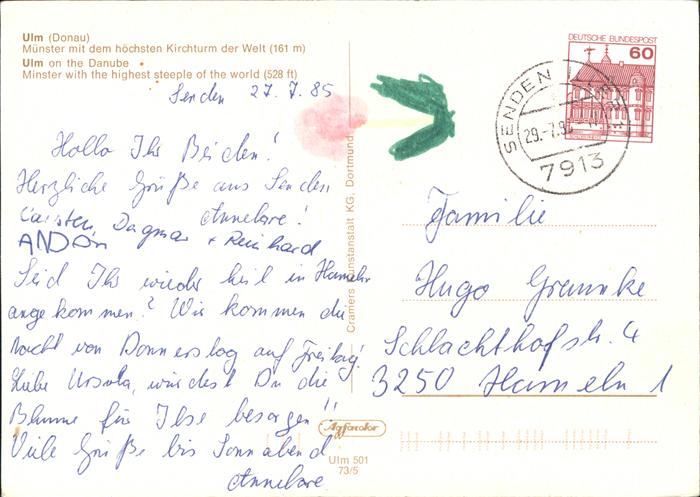 Ulm (Donau)
Münster mit dem höchsten Kirchturm der Welt (161 m)
Ulm on the Danube
Minster with the highest steeple of the world (528 ft)
Senden 27.7.85
Hallo Ihr Beiden!
Herzliche Grüße aus Senden
Annelore!
Carsten, Dagmar + Reinhard
Seid Ihr wieder heil in Hameln
angekommen? Wir kommen die
Nacht von Donnerstag auf Freitag!
Liebe Ursula, würdest Du die
Blume für Ilse besorgen!!
Viele Grüße bis Sonnabend
Annelore
Cramers Kunstanstalt KG, Dortmund
Agfacolor
Ulm 501
73/5
DEUTSCHE BUNDESPOST
60
SENDEN
29.-7.
7913
Familie
Hugo
Schlachthofstr. 4
3250 Hameln 1